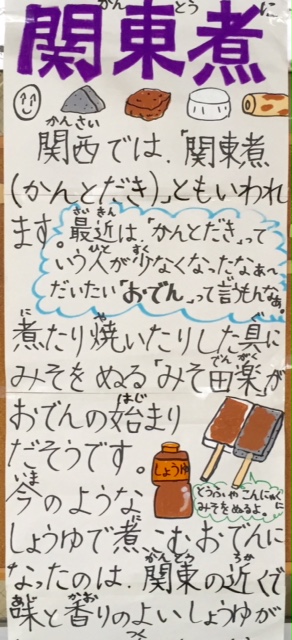 関東煮
関西では、「関東煮
(かんとだき)」ともいわれ
ます。最近は、「かんとだき」って
いう人が少なくなったなぁ〜
だいたい「おでん」って言うんだなぁ。
煮たり焼いたりした具に
みそをぬる「みそ田楽」が
おでんの始まり
だそうです。
しょうゆ
今のような
とうふやこんにゃくに
みそをぬるよ。
しょうゆで煮こむおでんに
なったのは、関東の近くで
味と香りのよいしょうゆが